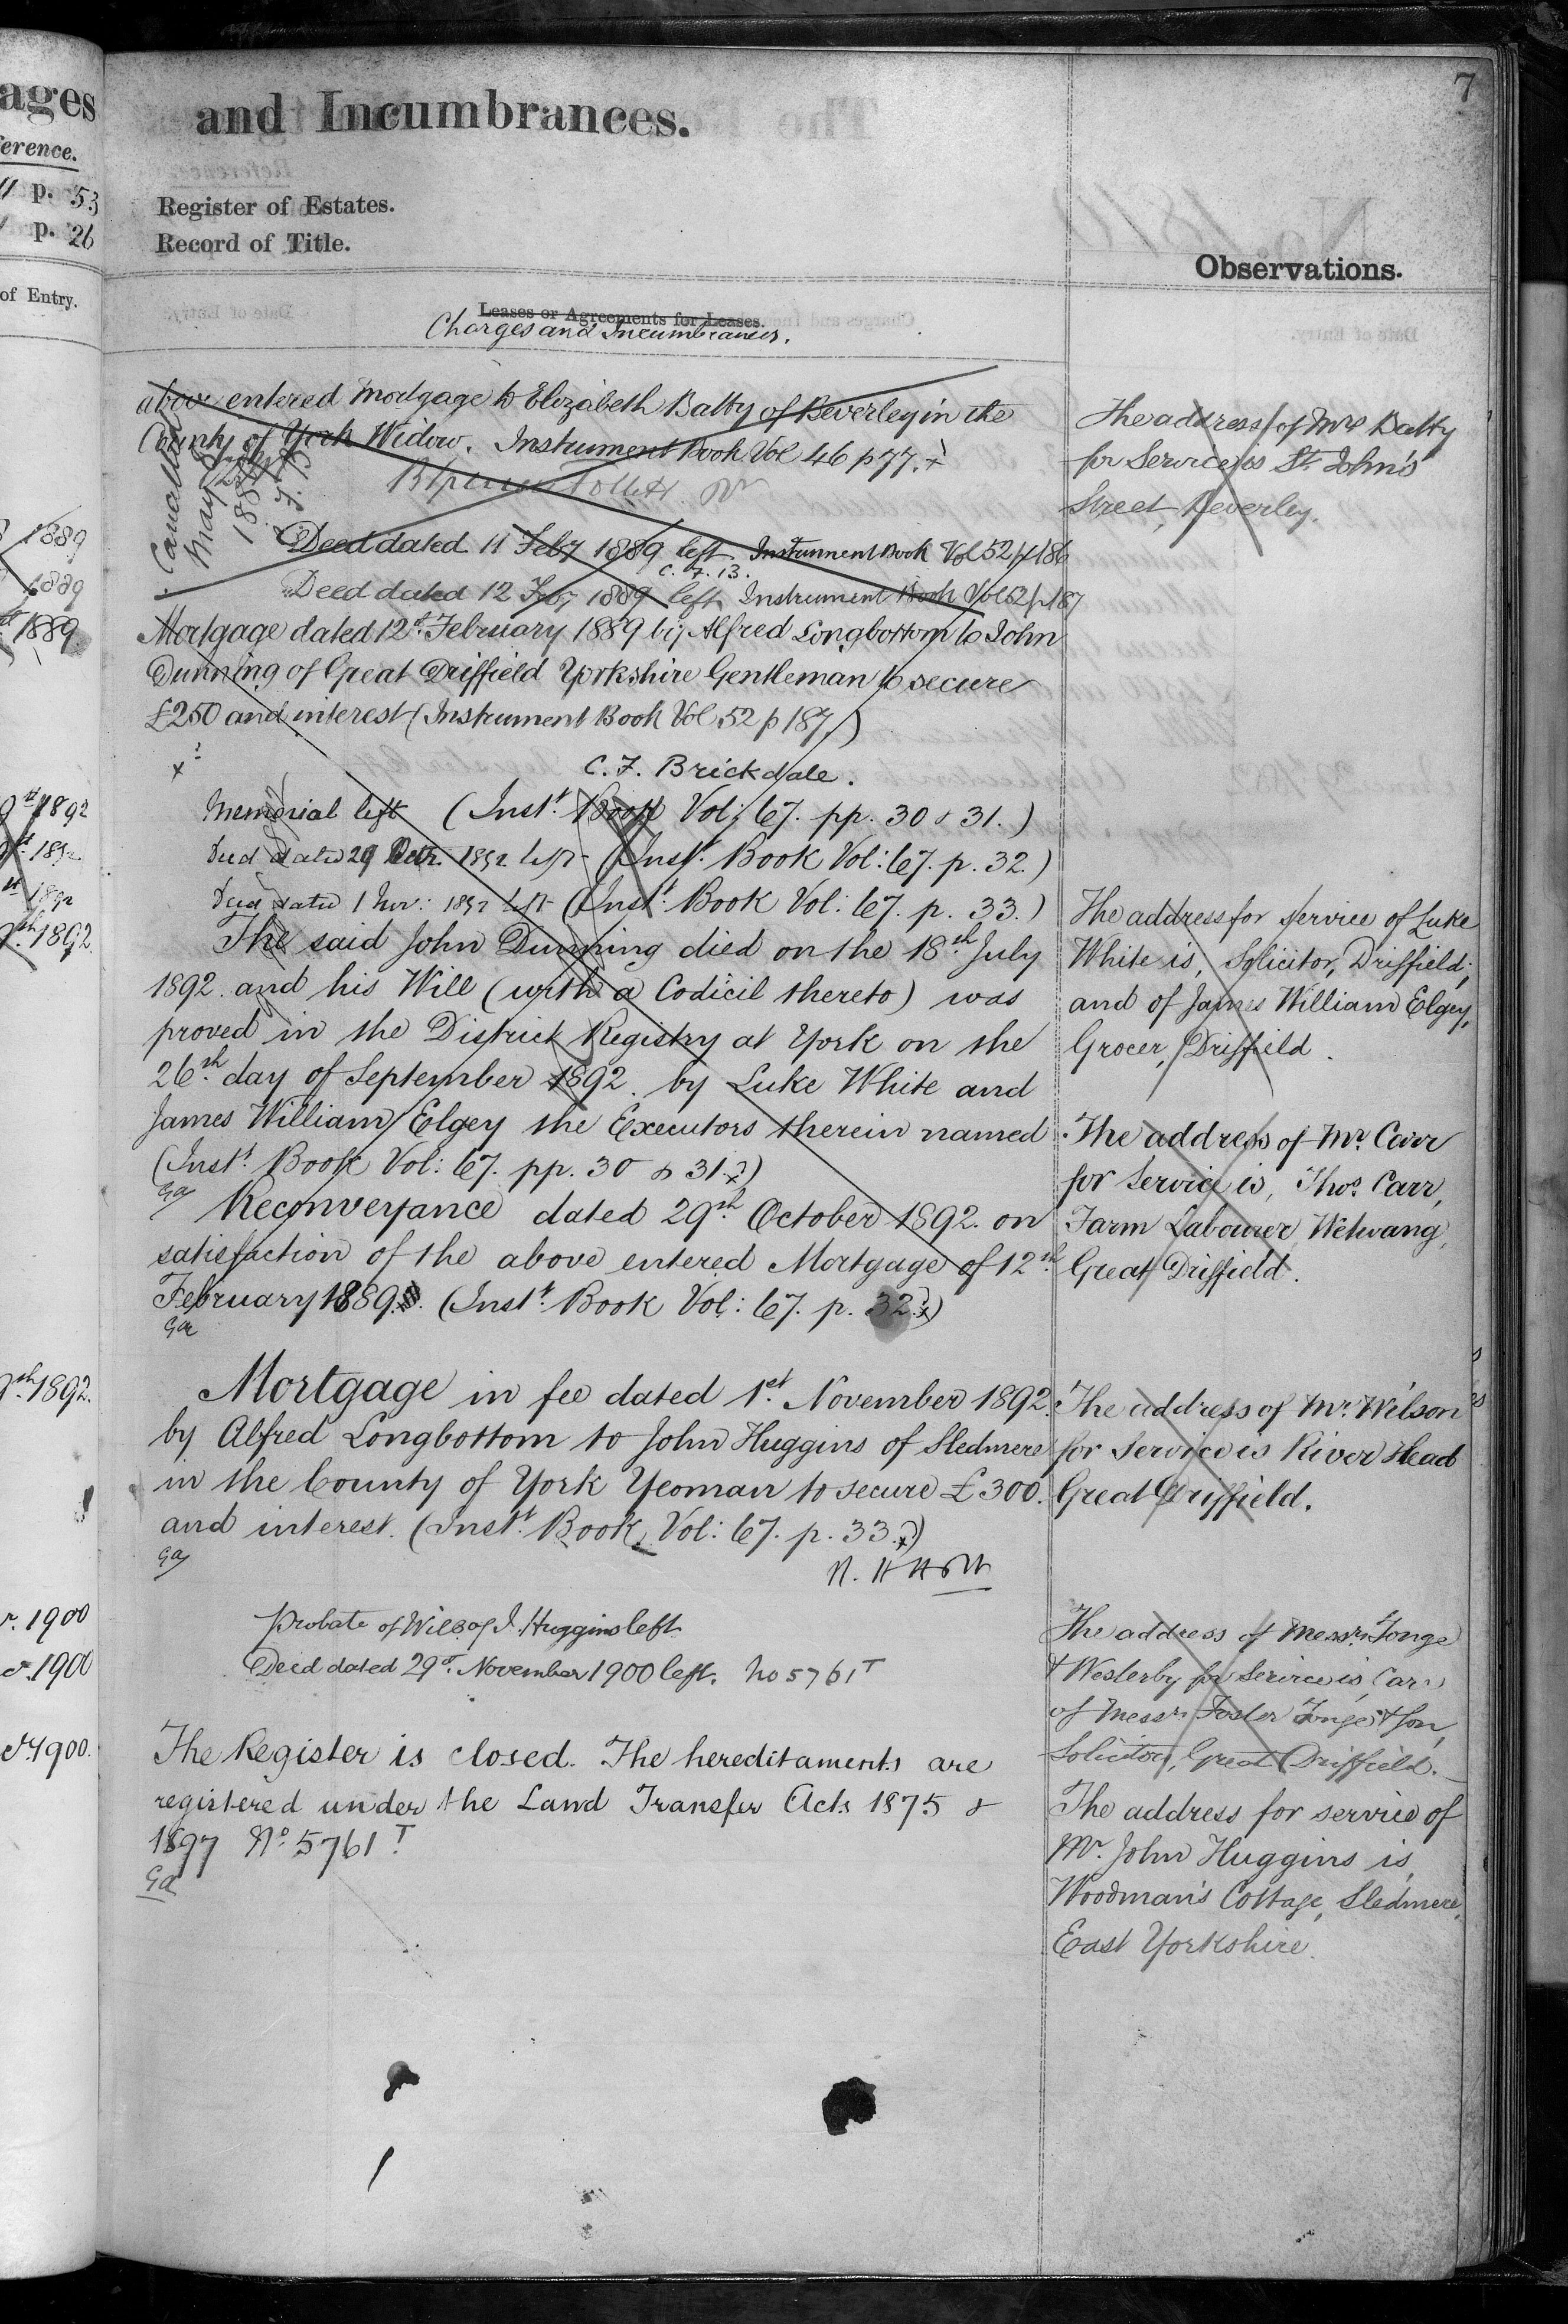 ages
erence.
p. 53
p. 26
of Entry.
1889
1889
1889
1892
1892
1892
1892
1892.
1900
1900
1900.
7
and Incumbrances.
Register of Estates.
Record of Title.
Leases or Agreements for Leases.
Charges and Incumbrances.
above entered Mortgage to Elizabeth Batty of Beverley in the
County of York Widow. Instrument Book Vol 46 p 77.
Cancelled
May
188
Deed dated 11 Feby 1889 left Instrument Book Vol 52 p 186
C. F. B.
Deed dated 12 Feby 1889 left Instrument Book Vol 52 p 187
Mortgage dated 12th February 1889 by Alfred Longbottom to John
Dunning of Great Driffield Yorkshire Gentleman to secure
£250 and interest (Instrument Book Vol 52 p 187.)
C. F. Brickdale.
Memorial left (Inst. Book Vol: 67. pp. 30 & 31.)
Deed dated 29 Octr. 1892 left (Inst. Book Vol: 67. p. 32.)
Deed dated 1 Nov: 1892 left (Inst. Book Vol: 67. p. 33.)
The said John Dunning died on the 18th July
1892. and his Will (with a Codicil thereto) was
proved in the District Registry at York on the
26th day of September 1892. by Luke White and
James William Elgey the Executors therein named
(Inst. Book Vol: 67. pp. 30 & 31.)
Ga
Reconveyance dated 29th October 1892. on
satisfaction of the above entered Mortgage of 12th
February 1889. (Inst. Book Vol: 67. p. 32.)
Ga
Mortgage in fee dated 1st November 1892.
by Alfred Longbottom to John Huggins of Sledmere
in the County of York Yeoman to secure £300.
and interest. (Inst. Book, Vol: 67. p. 33.)
Ga
Probate of Will of J. Huggins left
Deed dated 29th November 1900 left. No 5761T
The Register is closed. The hereditaments are
registered under the Land Transfer Acts 1875 &
1897 No 5761T
Ga
Observations.
The address of Mrs Batty
for Service is St. John's
Street, Beverley.
The address for service of Luke
White is, Solicitor, Driffield;
and of James William Elgey,
Grocer, Driffield.
The address of Mr. Carr
for Service is, Thos. Carr,
Farm Labourer, Wetwang,
Great Driffield.
The address of Mr. Wilson
for Service is River Head
Great Driffield.
The address of Messrs Tonge
& Westerby for Service is, Care
of Messrs Foster Tonge & Son,
Solicitors, Great Driffield.
The address for service of
Mr. John Huggins is,
Woodman's Cottage, Sledmere,
East Yorkshire.